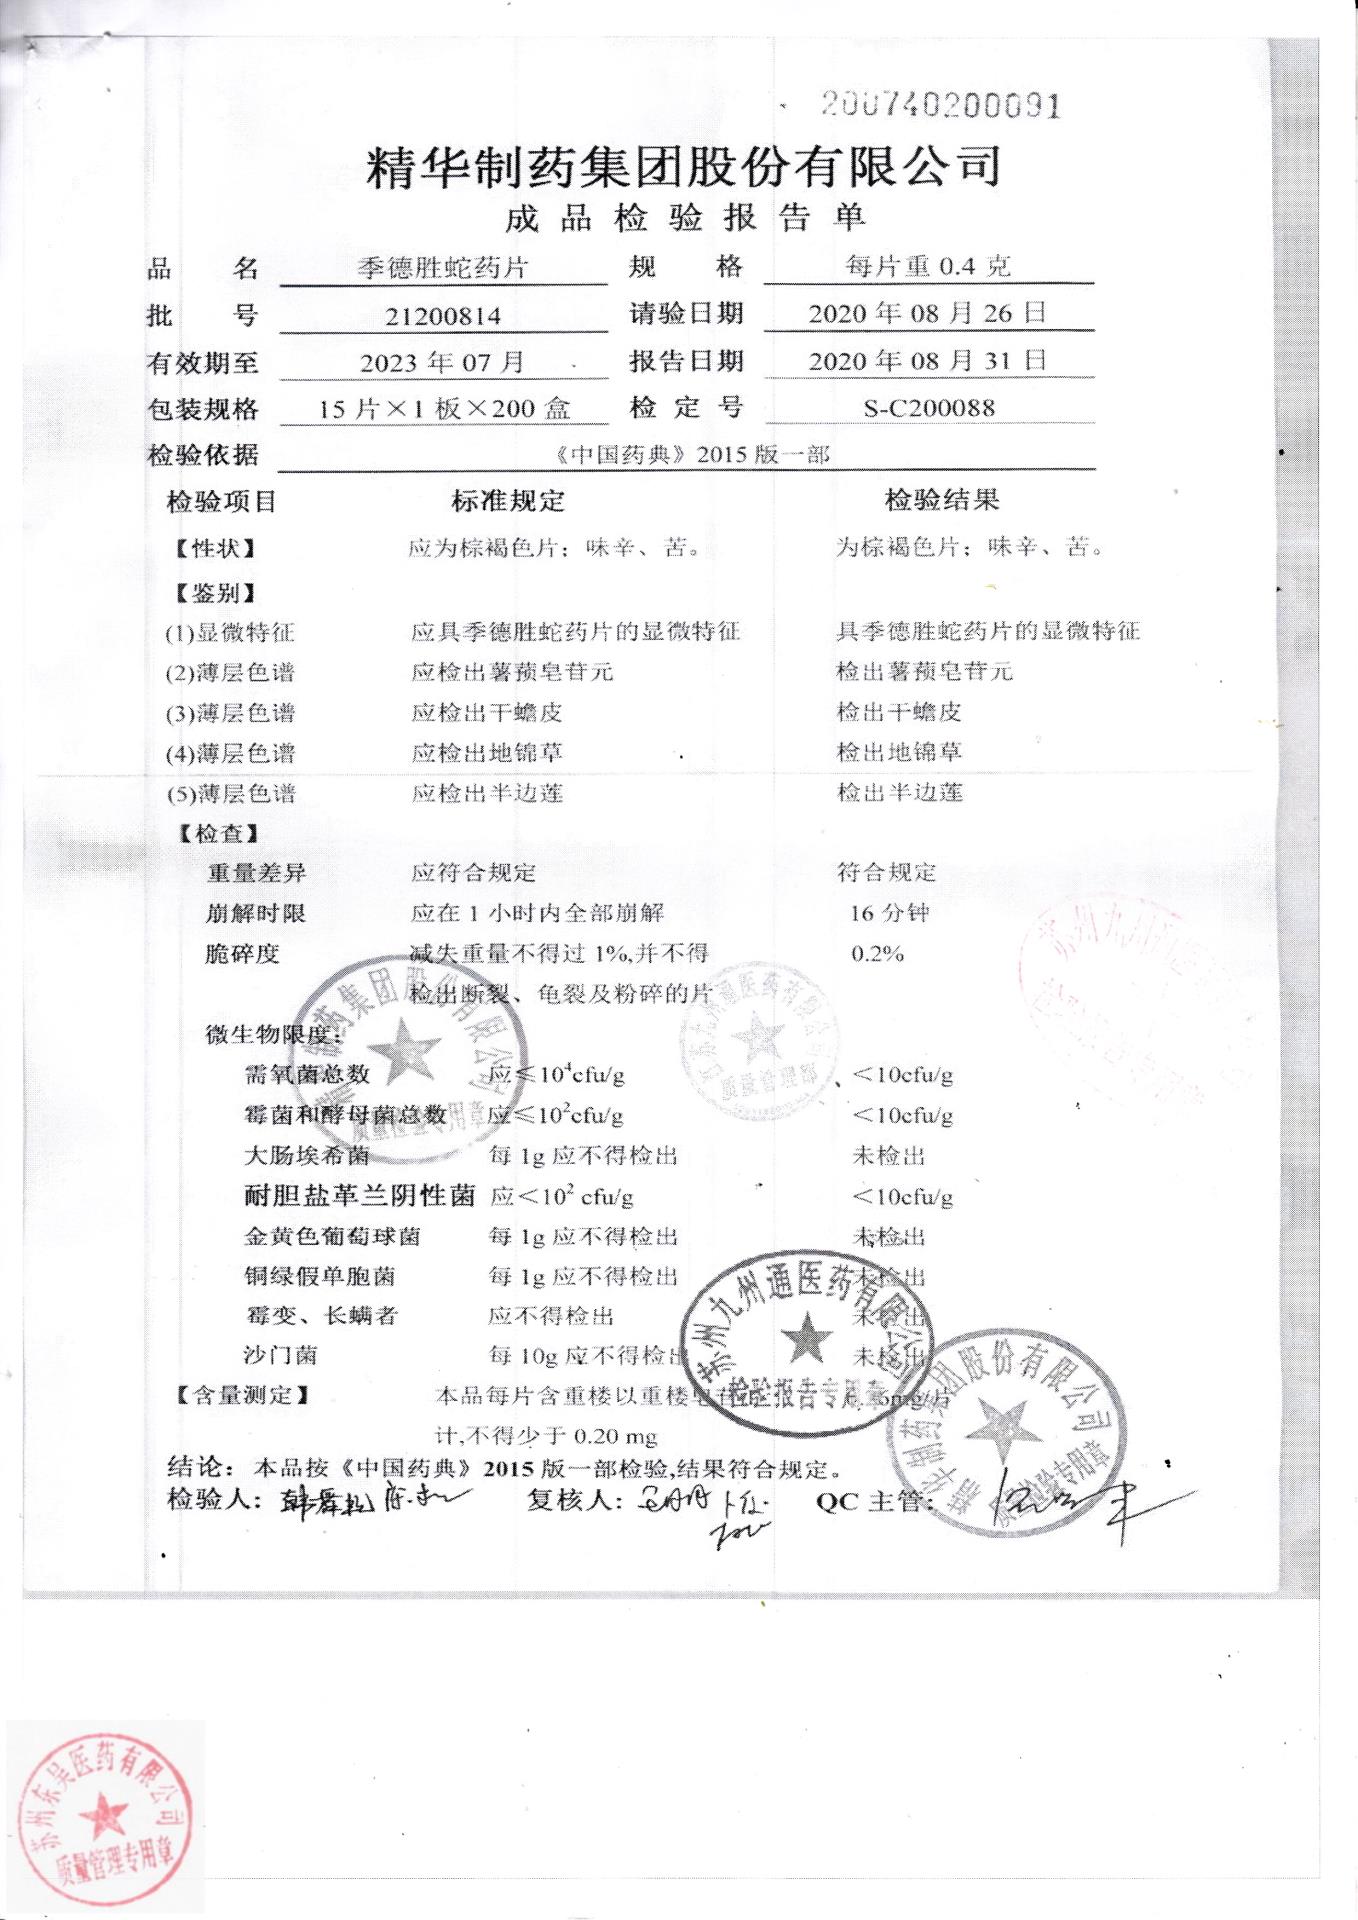 200740200091
精华制药集团股份有限公司
成品检验报告单
品 名 季德胜蛇药片 规 格 每片重 0.4 克
批 号 21200814 请验日期 2020 年 08 月 26 日
有效期至 2023 年 07 月 报告日期 2020 年 08 月 31 日
包装规格 15 片×1 板×200 盒 检 定 号 S-C200088
检验依据 《中国药典》2015 版一部
检验项目 标准规定 检验结果
【性状】 应为棕褐色片；味辛、苦。 为棕褐色片；味辛、苦。
【鉴别】
(1)显微特征 应具季德胜蛇药片的显微特征 具季德胜蛇药片的显微特征
(2)薄层色谱 应检出薯蓣皂苷元 检出薯蓣皂苷元
(3)薄层色谱 应检出干蟾皮 检出干蟾皮
(4)薄层色谱 应检出地锦草 检出地锦草
(5)薄层色谱 应检出半边莲 检出半边莲
【检查】
重量差异 应符合规定 符合规定
崩解时限 应在 1 小时内全部崩解 16 分钟
脆碎度 减失重量不得过 1%,并不得 0.2%
检出断裂、龟裂及粉碎的片
微生物限度：
需氧菌总数 应≤10⁴cfu/g ＜10cfu/g
霉菌和酵母菌总数 应≤10²cfu/g ＜10cfu/g
大肠埃希菌 每 1g 应不得检出 未检出
耐胆盐革兰阴性菌 应＜10² cfu/g ＜10cfu/g
金黄色葡萄球菌 每 1g 应不得检出 未检出
铜绿假单胞菌 每 1g 应不得检出 未检出
霉变、长螨者 应不得检出 未检出
沙门菌 每 10g 应不得检出 未检出
【含量测定】 本品每片含重楼以重楼皂苷 mg/片
计,不得少于 0.20 mg
结论：本品按《中国药典》2015 版一部检验,结果符合规定。
检验人： 复核人： QC 主管：
制药集团股份有限公司
质量检验专用章
苏州九州通医药有限公司
检验报告专用章
精华制药集团股份有限公司
质量检验专用章
苏州东吴医药有限公司
质量管理专用章